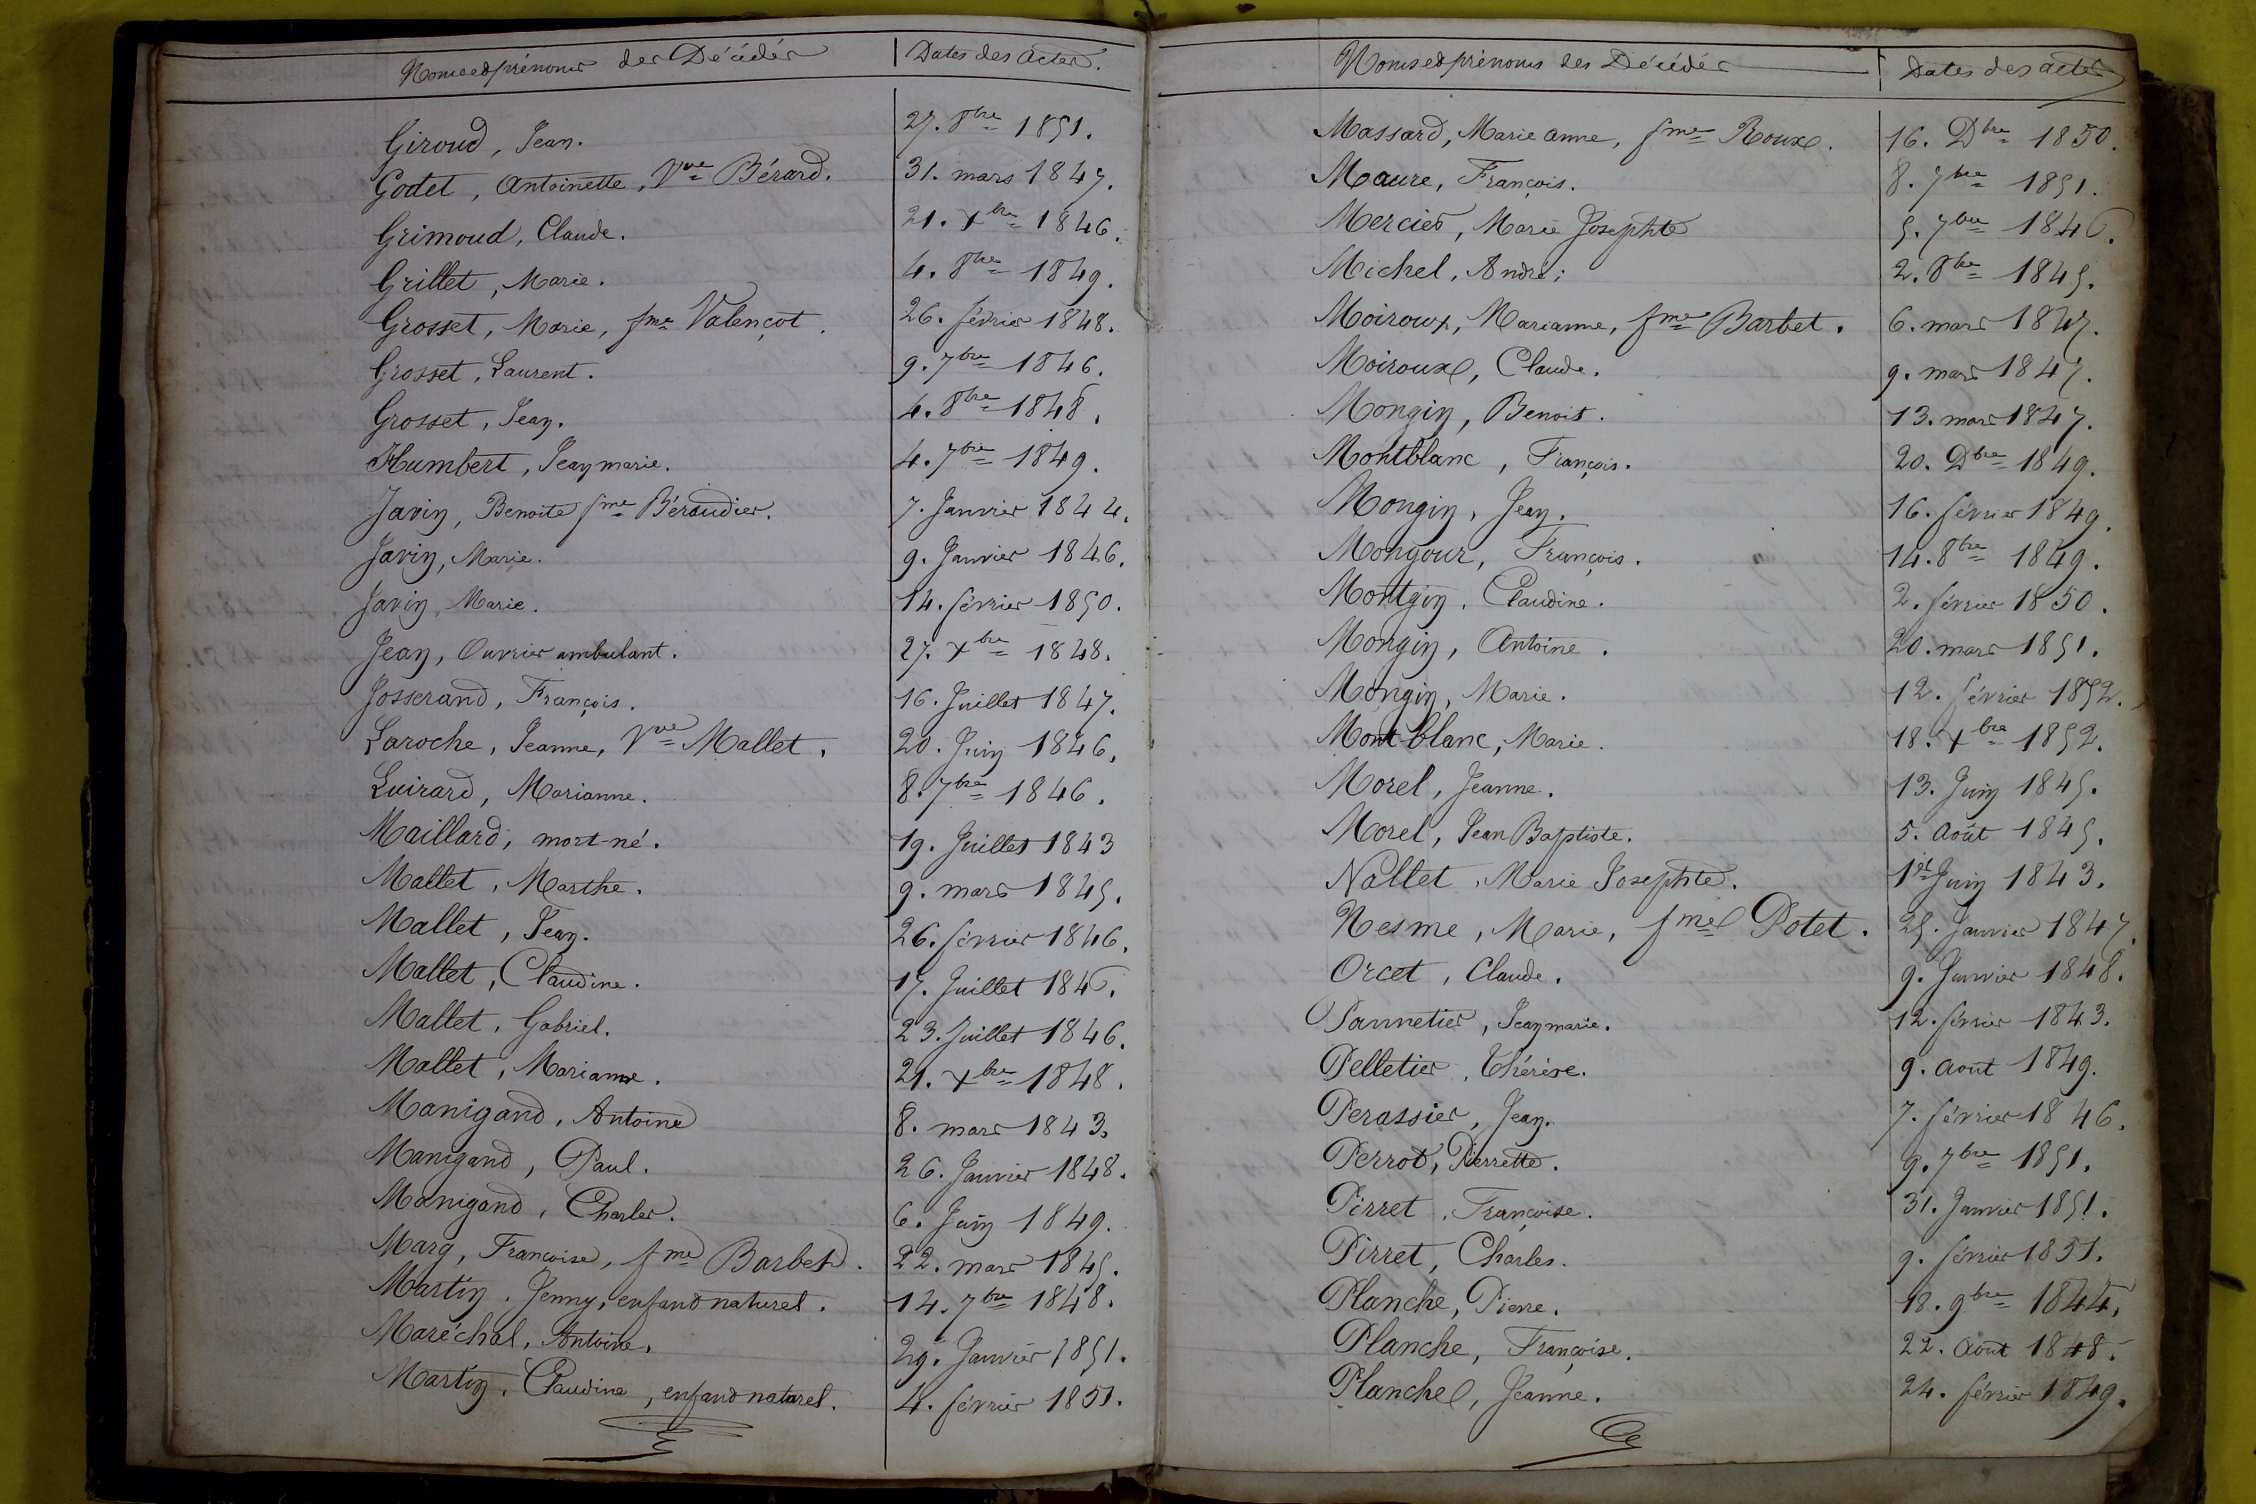 Noms et prénoms des Décédés | Dates des actes.
Giroud, Jean. 27. 8bre 1851.
Godet, Antoinette, Vve Bérard. 31. mars 1847.
Grimoud, Claude. 21. Xbre 1846.
Grillet, Marie. 4. 8bre 1849.
Grosset, Marie, fme Valençot. 26. février 1848.
Grosset, Laurent. 9. 7bre 1846.
Grosset, Jean. 4. 8bre 1848.
Humbert, Jean marie. 4. 7bre 1849.
Javin, Benoite fme Béraudier. 7. Janvier 1844.
Javin, Marie. 9. Janvier 1846.
Javin, Marie. 14. février 1850.
Jean, Ouvrier ambulant. 27. Xbre 1848.
Josserand, François. 16. Juillet 1847.
Laroche, Jeanne, Vve Mallet. 20. Juin 1846.
Luirard, Marianne. 8. 7bre 1846.
Maillard, mort-né. 19. Juillet 1843
Mallet, Marthe. 9. mars 1845.
Mallet, Jean. 26. février 1846.
Mallet, Claudine. 17. Juillet 1846.
Mallet, Gabriel. 23. Juillet 1846.
Mallet, Marianne. 21. Xbre 1848.
Manigand, Antoine 8. mars 1843.
Manigand, Paul. 26. Janvier 1848.
Manigand, Charles. 6. Juin 1849.
Marg, Françoise, fme Barbet. 22. mars 1845.
Martin, Jenny, enfand naturel. 14. 7bre 1848.
Maréchal, Antoine. 29. Janvier 1851.
Martin, Claudine, enfand naturel. 4. février 1851.
Noms et prénoms des Décédés | Dates des actes
Massard, Marie anne, fme Roux. 16. Dbre 1850.
Maure, François. 8. 7bre 1851.
Mercier, Marie Josephte 5. 7bre 1846.
Michel, André. 2. 8bre 1845.
Moiroux, Marianne, fme Barbet. 6. mars 1847.
Moiroux, Claude. 9. mars 1847.
Mongin, Benoit. 13. mars 1847.
Montblanc, François. 20. Dbre 1849.
Mongin, Jean. 16. février 1849.
Mongour, François. 14. 8bre 1849.
Montgin, Claudine. 2. février 1850.
Mongin, Antoine. 20. mars 1851.
Mongin, Marie. 12. février 1852.
Montblanc, Marie. 18. Xbre 1852.
Morel, Jeanne. 13. Juin 1845.
Morel, Jean Baptiste. 5. Août 1845.
Nallet, Marie Josephte. 1er Juin 1843.
Nesme, Marie, fme Potet. 25. Janvier 1847.
Orcet, Claude. 9. Janvier 1848.
Pannetier, Jean marie. 12. février 1843.
Pelletier, Thérèse. 9. août 1849.
Perassier, Jean. 7. février 1846.
Perrod, Pierrette. 9. 7bre 1851.
Pirret, Françoise. 31. Janvier 1851.
Pirret, Charles. 9. février 1851.
Planche, Pierre. 18. 9bre 1844.
Planche, Françoise. 22. Août 1848.
Planche, Jeanne. 24. février 1849.